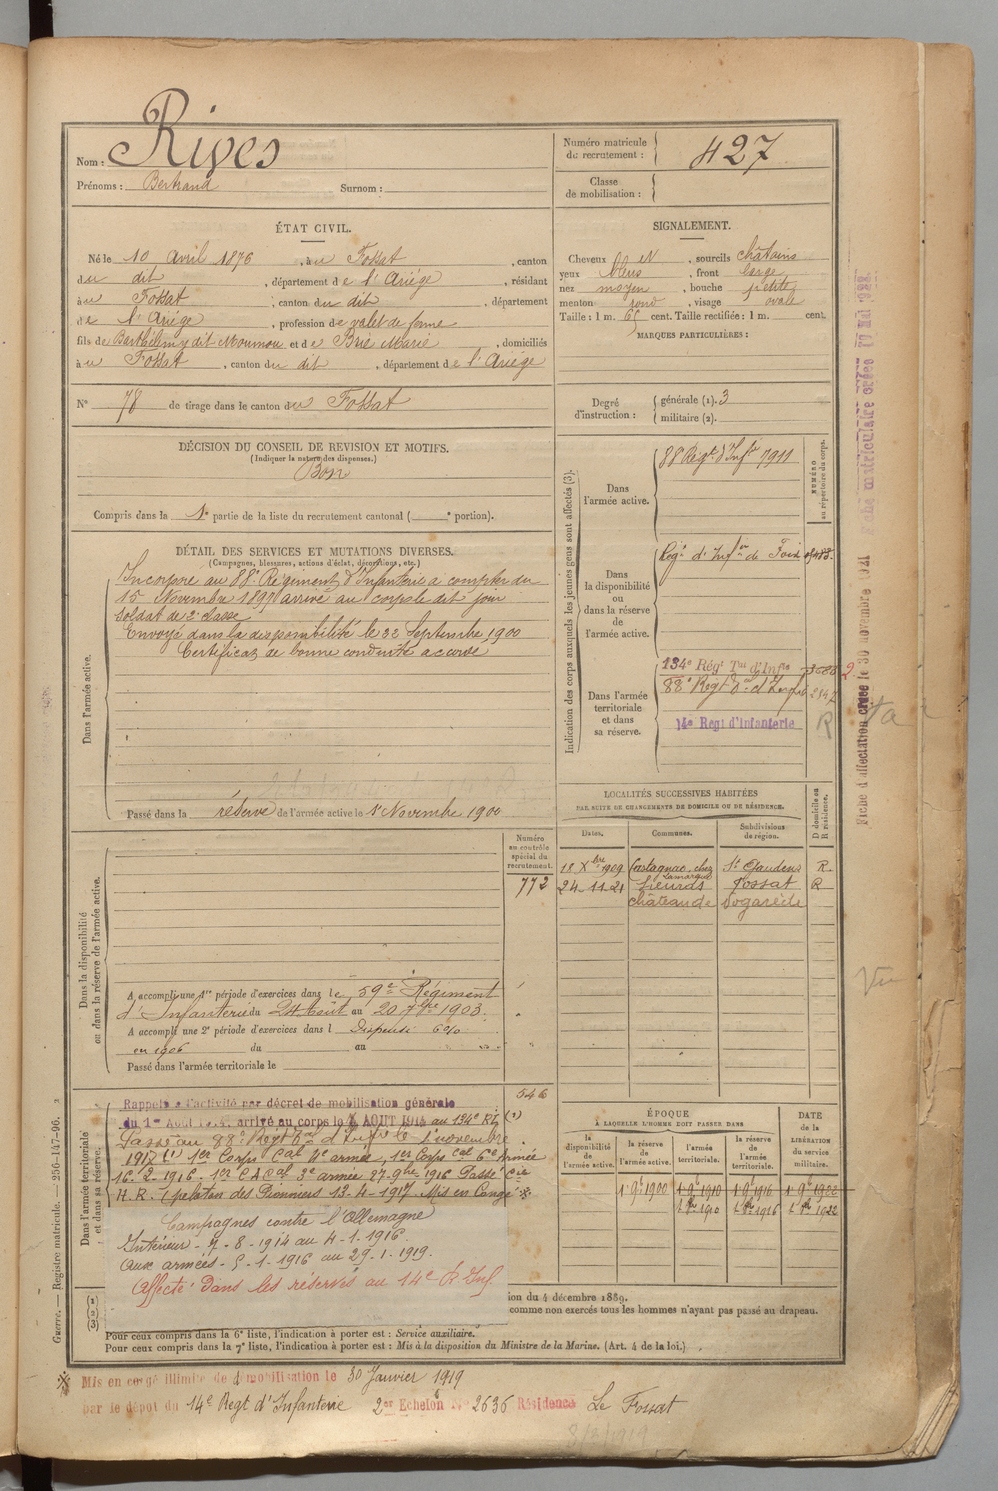 Nom : Rives
Prénoms : Bertrand Surnom :
Numéro matricule du recrutement : 427
Classe de mobilisation :
ÉTAT CIVIL.
Né le 10 Avril 1876, à u Fossat, canton
d u dit, département d e l'Ariége, résidant
à u Fossat, canton d u dit, département
d e l'Ariége, profession d e valet de ferme
fils de Barthélemy dit Moumou et d e Brie Marie, domiciliés
à u Fossat, canton d u dit, département d e l'Ariége
N° 78 de tirage dans le canton d u Fossat
SIGNALEMENT.
Cheveux et, sourcils châtains
yeux bleus, front large
nez moyen, bouche petite
menton rond, visage ovale
Taille : 1 m. 65 cent. Taille rectifiée : 1 m. cent.
MARQUES PARTICULIÈRES :
Degré d'instruction : générale (1). 3
militaire (2).
DÉCISION DU CONSEIL DE REVISION ET MOTIFS.
(Indiquer la nature des dispenses.)
Bon
Compris dans la 1e partie de la liste du recrutement cantonal ( portion).
DÉTAIL DES SERVICES ET MUTATIONS DIVERSES.
(Campagnes, blessures, actions d'éclat, décorations, etc.)
Dans l'armée active.
Incorporé au 88e Régiment d'Infanterie à compter du
15 Novembre 1897 arrivé au corps le dit jour
soldat de 2e classe
Envoyé dans la disponibilité le 22 Septembre 1900
Certificat de bonne conduite accordé
Passé dans la réserve de l'armée active le 1er Novembre 1900
Indication des corps auxquels les jeunes gens sont affectés (3).
NUMÉRO au répertoire du corps.
Dans l'armée active.
88 Régt d'Infie 7911
Dans la disponibilité ou dans la réserve de l'armée active.
Regt d'Infie de Foix
Dans l'armée territoriale et dans sa réserve.
134e Régt Tal d'Infie
88e Regt d'Inf
14e Regt d'Infanterie
R
LOCALITÉS SUCCESSIVES HABITÉES
PAR SUITE DE CHANGEMENTS DE DOMICILE OU DE RÉSIDENCE.
D domicile ou R résidence.
Dates. Communes. Subdivisions de région.
18 Xbre 1909 Castagnac, chez Lamarque St Gaudens R.
24-11-21 Lieurds Fossat R
château de Sogarède
Numéro au contrôle spécial du recrutement.
772
Dans la disponibilité ou dans la réserve de l'armée active.
A accompli une 1re période d'exercices dans l e 59e Régiment
d'Infanterie du 24 Août au 20 7bre 1903.
A accompli une 2e période d'exercices dans l Dispensé 6%
en 1906 du au
Passé dans l'armée territoriale le
546
Dans l'armée territoriale et dans sa réserve.
Rappelé à l'activité par décret de mobilisation générale
du 1er Août 1914, arrivé au corps le AOUT 1914 au 134e Rt (1)
Passé au 88e Regt d'Infie le 1er novembre
1917 (1) 1er Corps Cal 4e armée, 1er Corps Cal 6e Armée
16-2-1916. 1er C A Cal 3e armée 27-9bre 1916 Passé Cie
H. R. (peloton des Pionniers 13-4-1917. Mis en Congé ※
Campagnes contre l'Allemagne
Intérieur - 7-8-1914 au 4-1-1916.
Aux armées - 5-1-1916 au 29-1-1919.
Affecté dans les réserves au 14e R. Inf
ÉPOQUE
À LAQUELLE L'HOMME DOIT PASSER DANS
DATE de la LIBÉRATION du service militaire.
la disponibilité de l'armée active. la réserve de l'armée active. l'armée territoriale. la réserve de l'armée territoriale.
1 9e 1900 1 9e 1910 1 9e 1916 1 9e 1922
1er 8bre 1910 1er 8bre 1916 1er 8bre 1922
(1)
(2)
(3)
ion du 4 décembre 1889.
comme non exercés tous les hommes n'ayant pas passé au drapeau.
Pour ceux compris dans la 6e liste, l'indication à porter est : Service auxiliaire.
Pour ceux compris dans la 7e liste, l'indication à porter est : Mis à la disposition du Ministre de la Marine. (Art. 4 de la loi.)
※ Mis en congé illimité de démobilisation le 30 Janvier 1919
par le dépôt du 14e Regt d'Infanterie 2e Echelon N° 2636 Résidence Le Fossat
Guerre. — Registre matricule. — 256-147-96.
Fiche d'affectation créée le 30 novembre 1941
Fiche matriculaire créée